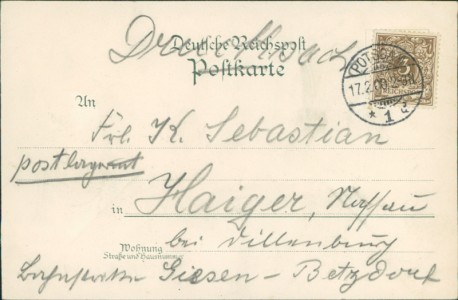 Drucksache
Deutsche Reichspost
Postkarte
POTSDAM
17.2.00
* 1 d
3
An
Frl. K. Sebastian
postlagernd
in Haiger, Nassau
Wohnung
Straße und Hausnummer
bei Dillenburg
Bahnstrecke Giesen - Betzdorf